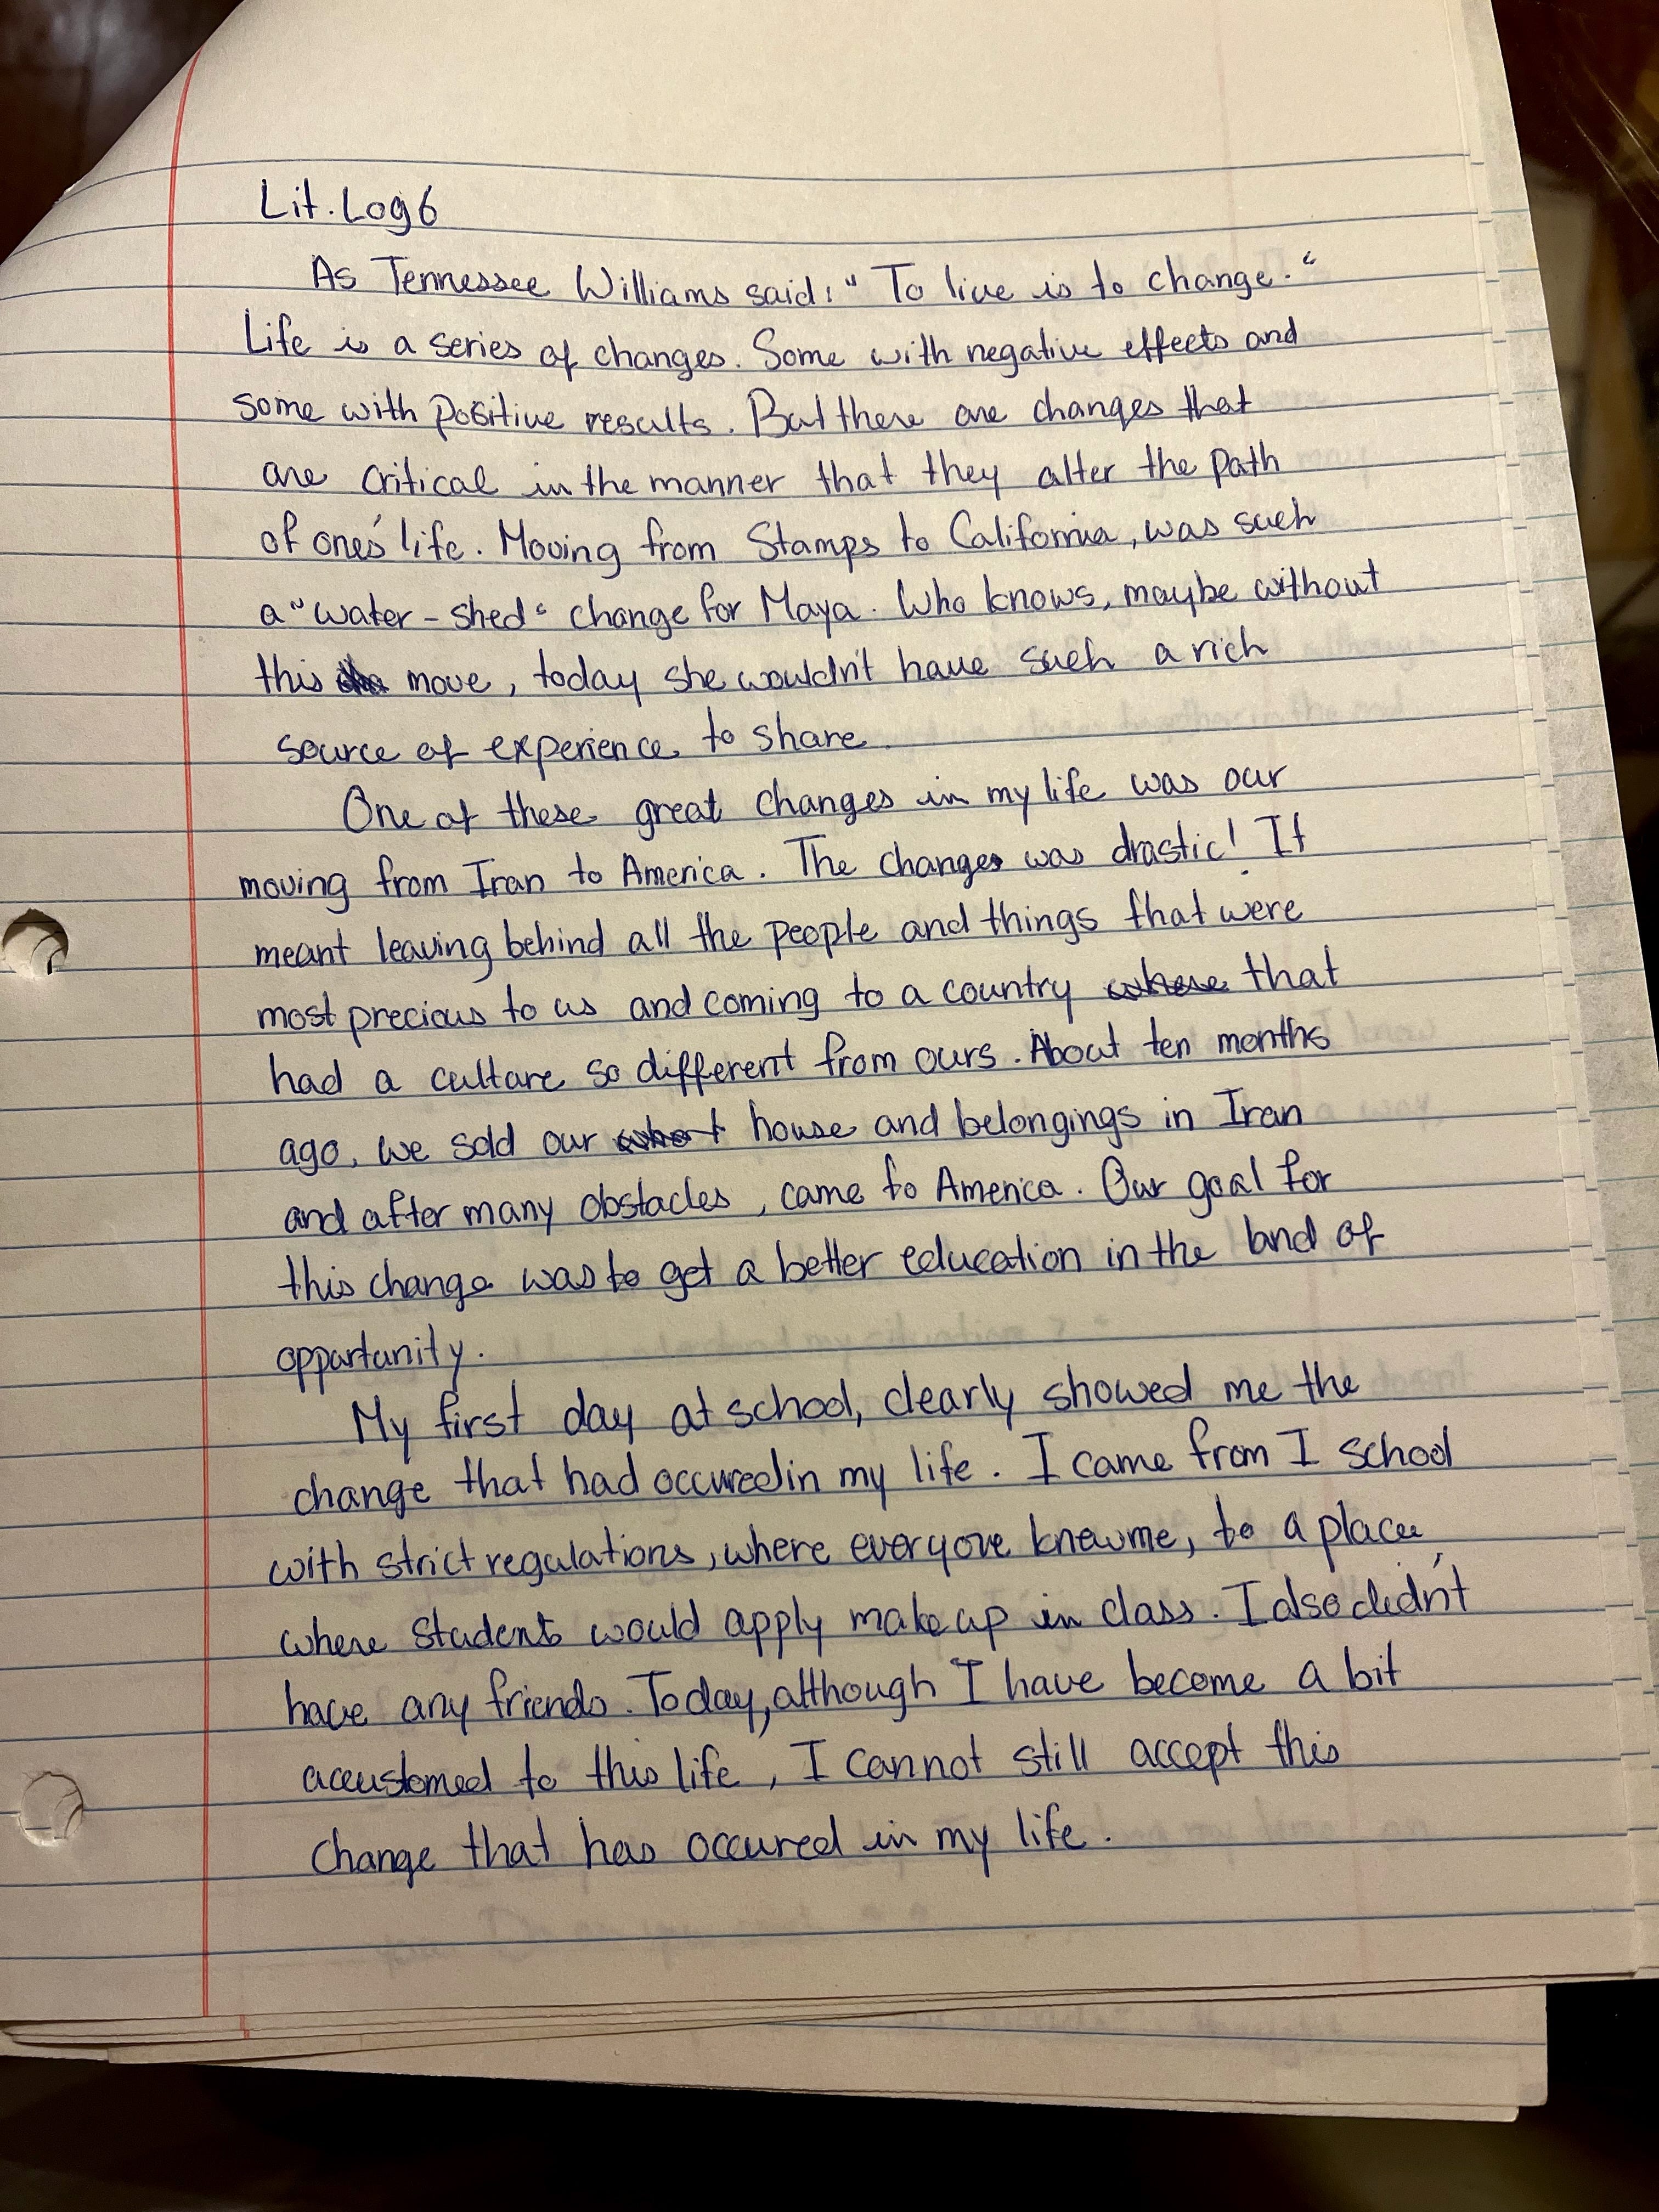 Lit. Log 6
As Tennessee Williams said: "To live is to change."
Life is a series of changes. Some with negative effects and
some with positive results. But there are changes that
are critical in the manner that they alter the path
of one's life. Moving from Stamps to California, was such
a "water-shed" change for Maya. Who knows, maybe without
this move, today she wouldn't have such a rich
source of experience to share.
One of these great changes in my life was our
moving from Iran to America. The change was drastic! It
meant leaving behind all the people and things that were
most precious to us and coming to a country where that
had a culture so different from ours. About ten months
ago, we sold our house and belongings in Iran
and after many obstacles, came to America. Our goal for
this change was to get a better education in the land of
opportunity.
My first day at school, clearly showed me the
change that had occured in my life. I came from I school
with strict regulations, where everyone knew me, to a place
where students would apply makeup in class. I also didn't
have any friends. Today, although I have become a bit
accustomed to this life, I cannot still accept this
change that has occured in my life.